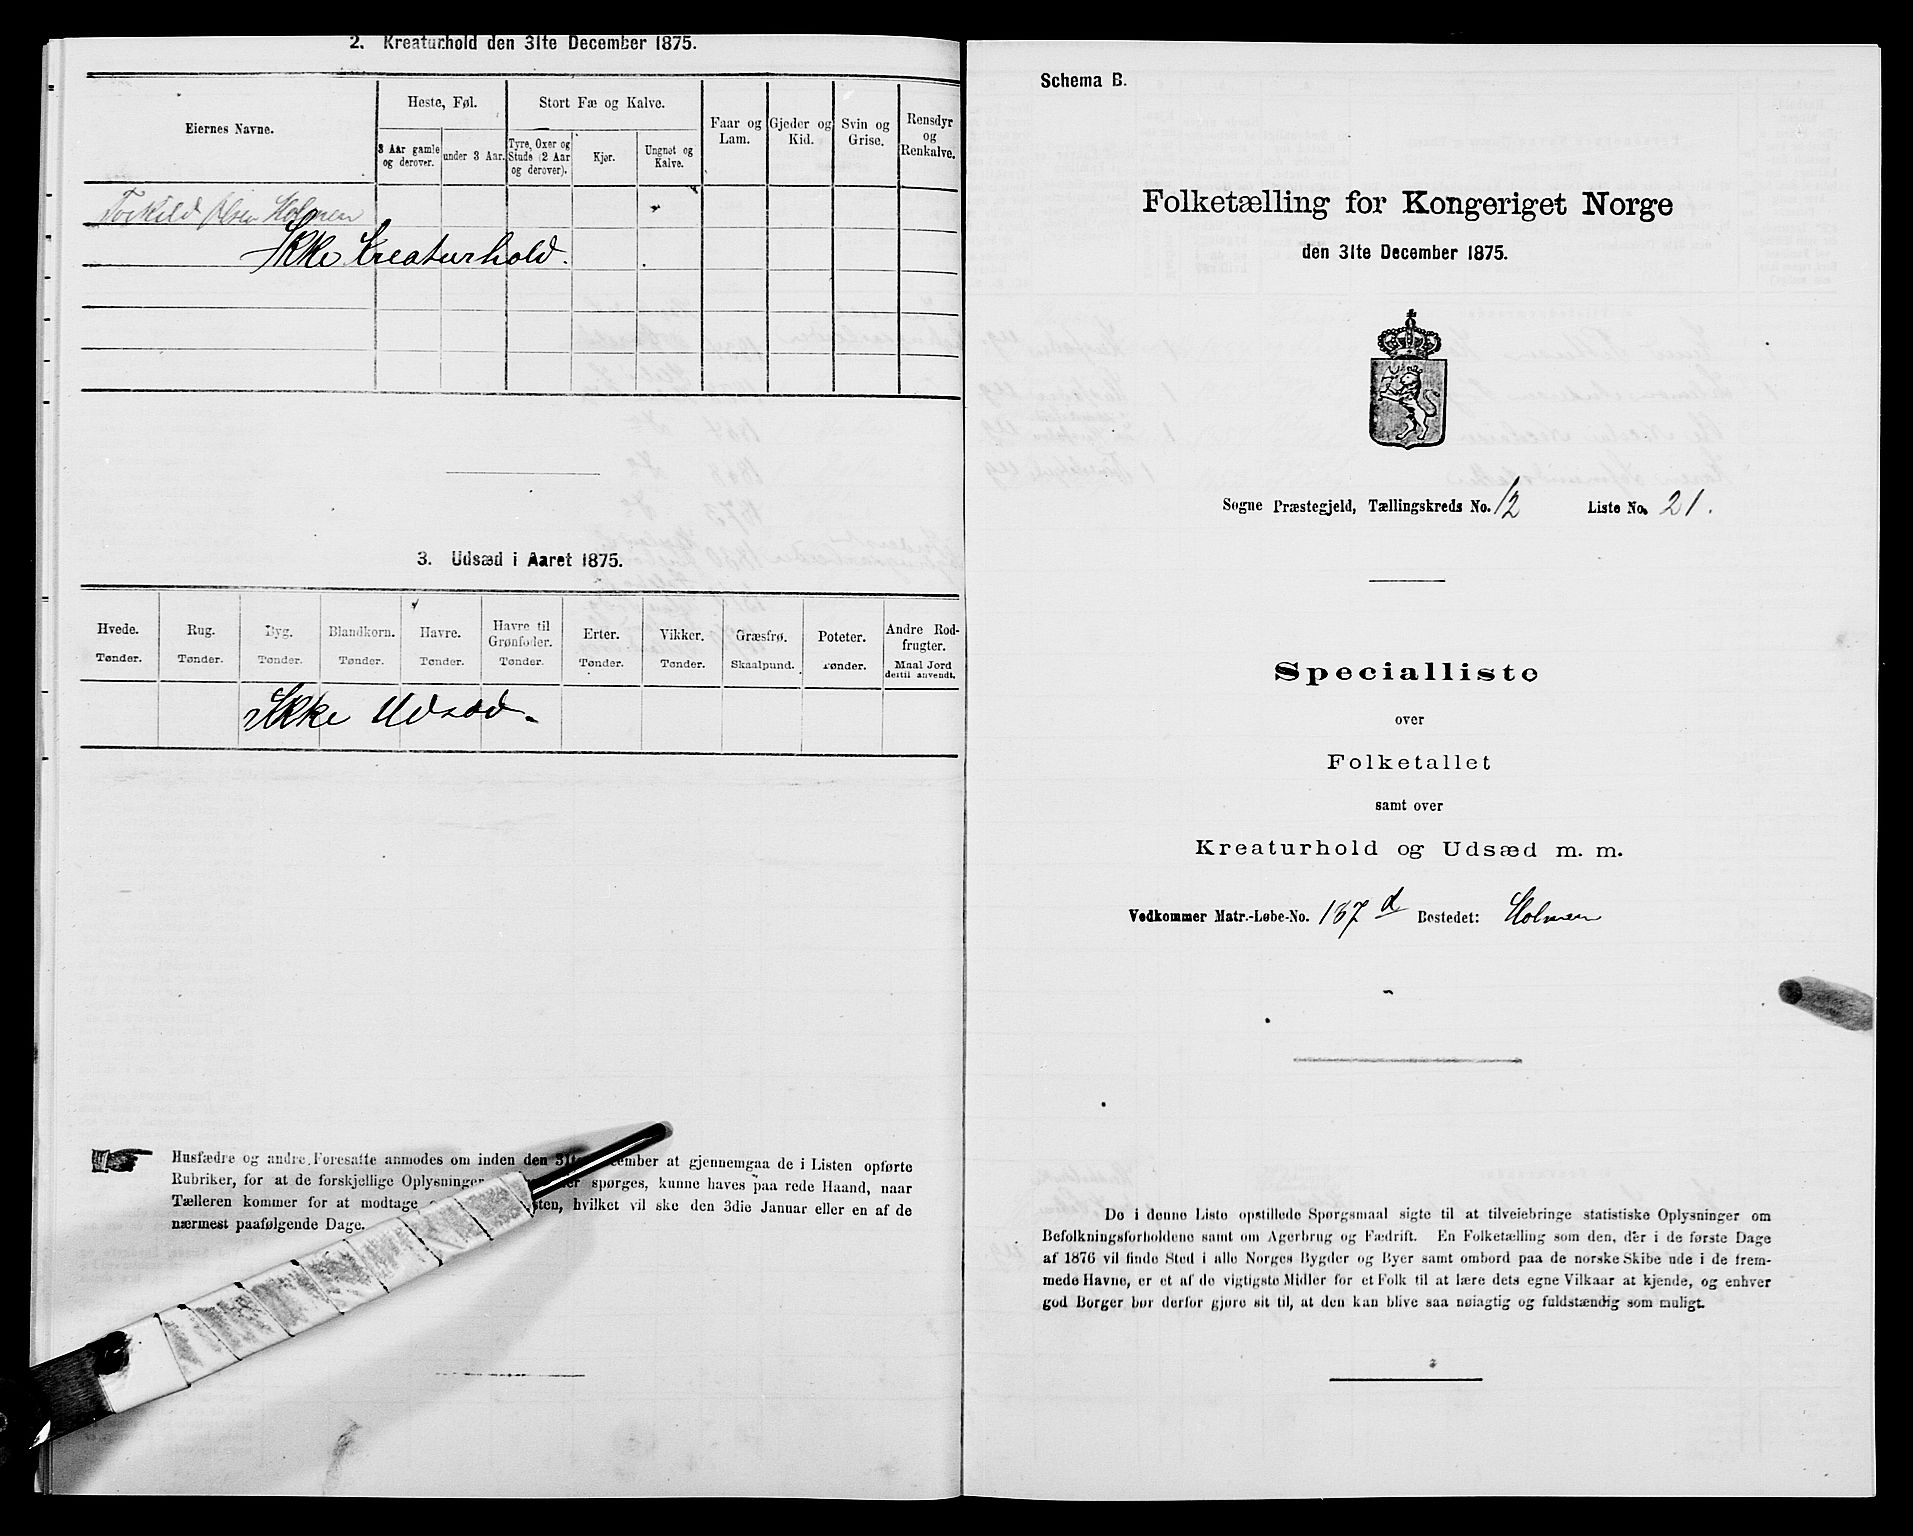 2. Kreaturhold den 31te December 1875.
Eiernes Navne.
Heste, Føl.
3 Aar gamle og derover.
under 3 Aar.
Stort Fæ og Kalve.
Tyre, Oxer og Stude (2 Aar og derover).
Kjør.
Ungnøt og Kalve.
Faar og Lam.
Gjeder og Kid.
Svin og Grise.
Rensdyr og Renkalve.
Torkild Olsen Holmen
Ikke Kreaturhold.
3. Udsæd i Aaret 1875.
Hvede. Rug. Byg. Blandkorn. Havre. Havre til Grønfoder. Erter. Vikker. Græsfrø. Poteter. Andre Rodfrugter.
Tønder. Tønder. Tønder. Tønder. Tønder. Tønder. Tønder. Tønder. Skaalpund. Tønder. Maal Jord dertil anvendt.
Ikke Udsæd.
Husfædre og andre Foresatte anmodes om inden den 31te December at gjennemgaa de i Listen opførte
Rubriker, for at de forskjellige Oplysninger, spørges, kunne haves paa rede Haand, naar
Tælleren kommer for at modtage hvilket vil ske den 3die Januar eller en af de
nærmest paafølgende Dage.
Schema B.
Folketælling for Kongeriget Norge
den 31te December 1875.
Sogne Præstegjeld, Tællingskreds No. 12 Liste No. 21.
Specialliste
over
Folketallet
samt over
Kreaturhold og Udsæd m. m.
Vedkommer Matr.-Løbe-No. 187 d Bostedet: Holmen
De i denne Liste opstillede Spørgsmaal sigte til at tilveiebringe statistiske Oplysninger om
Befolkningsforholdene samt om Agerbrug og Fædrift. En Folketælling som den, der i de første Dage
af 1876 vil finde Sted i alle Norges Bygder og Byer samt ombord paa de norske Skibe ude i de frem-
mede Havne, er et af de vigtigste Midler for et Folk til at lære dets egne Vilkaar at kjende, og enhver
god Borger bør derfor gjøre sit til, at den kan blive saa nøiagtig og fuldstændig som muligt.